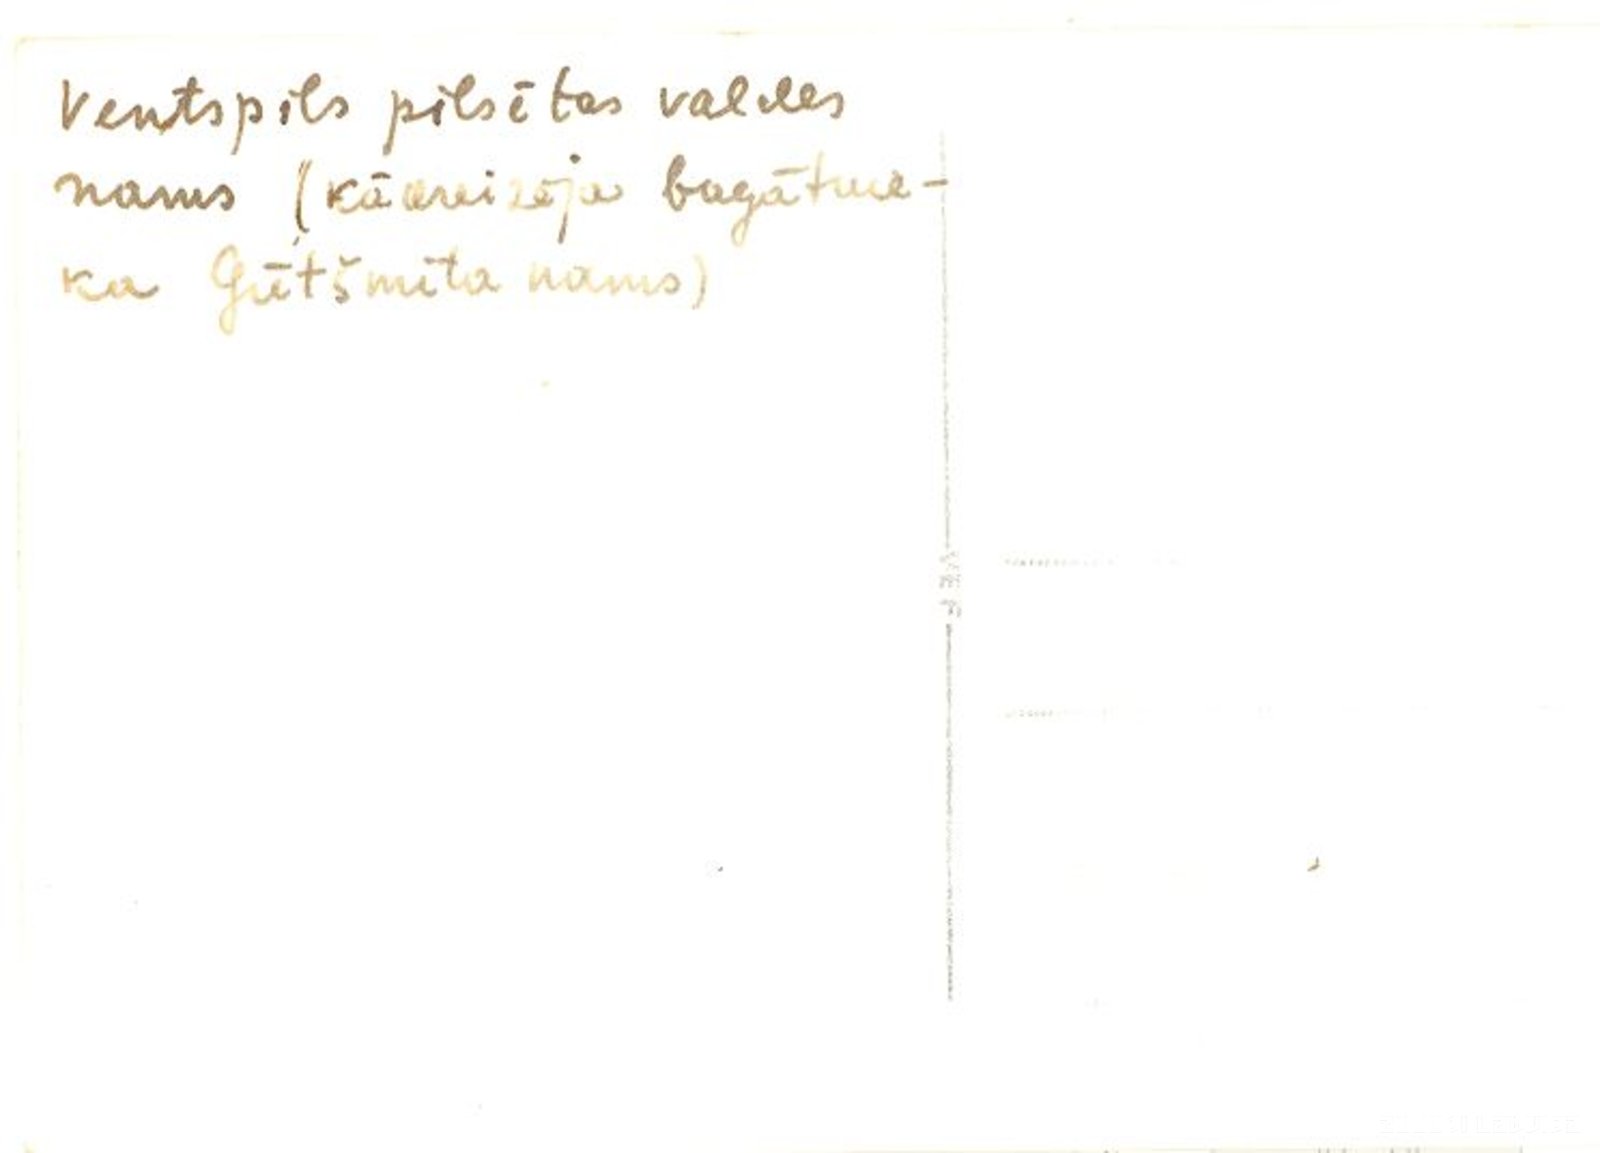 Ventspils pilsētas valdes
nams (kādreizēja bagātnie-
ka Gūtšmita nams)
VEF